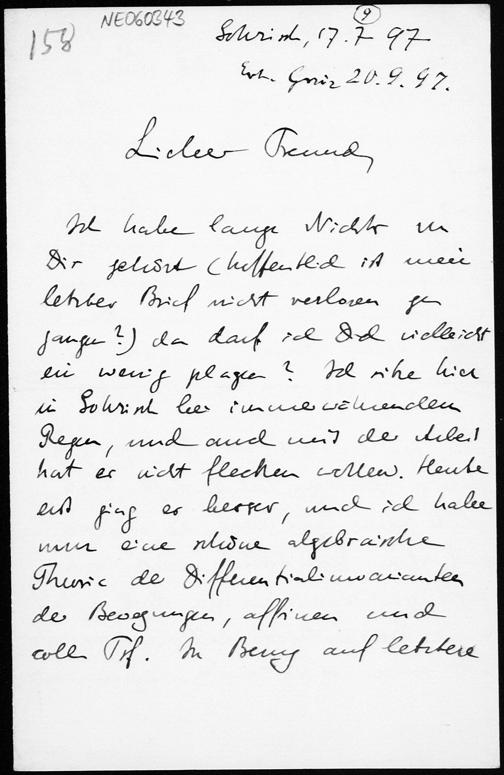 158
NE060343
9
Gohrisch, 17.7 97
Erh. Graz 20.9.97.
Lieber Freund,
Ich habe lange Nichts von
Dir gehört (hoffentlich ist mein
letzter Brief nicht verloren ge
gangen?) da darf ich Dich vielleicht
ein wenig plagen? Ich sitze hier
in Gohrisch bei immerwährendem
Regen, und auch mit der Arbeit
hat es nicht flecken wollen. Heute
erst ging es besser, und ich habe
nun eine schöne algebraische
Theorie der Differentialinvarianten
der Bewegungen, affinen und
coll. Trf. In Bezug auf letztere